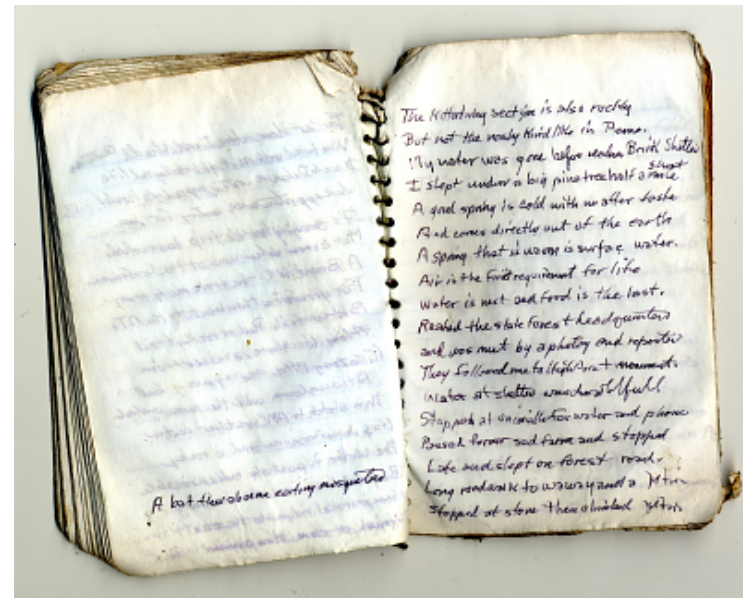 A bat there alone eating mosquitoes
The Kittatinny section is also rocky
But not the nearly kind like in Penna.
My water was gone before Brink Shelter
I slept under a big pine tree half a mile short
A good spring is cold with no after taste
And comes directly out of the earth
A spring that is warm is surface water.
Air is the First requirement for life
Water is next and food is the last.
Reached the state Forest headquarters
and was met by a photog and reporter
They followed me to High Point monument.
Water at shelter was full
Stopped at for water and phone
Passed former sod farm and stopped
Late and slept on forest road.
Long roadwalk to and a Mtn
Stopped at store then climbed Mtn